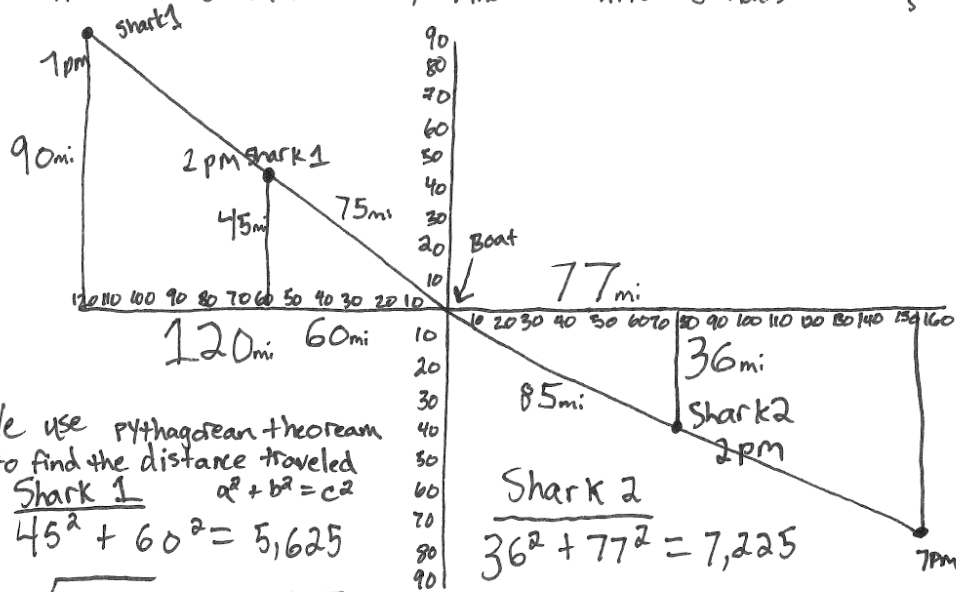 shark1
1pm
90mi
2pm shark 1
45mi
75mi
90
80
70
60
50
40
30
20
10
Boat
77mi
120 110 100 90 80 70 60 50 40 30 20 10
10 20 30 40 50 60 70 80 90 100 110 120 130 140 150 160
120mi 60mi
10
20
30
40
50
60
70
80
90
36mi
85mi
Shark2
2pm
7pm
use pythagorean theoream
to find the distance traveled
Shark 1 a² + b² = c²
45² + 60² = 5,625
Shark 2
36² + 77² = 7,225